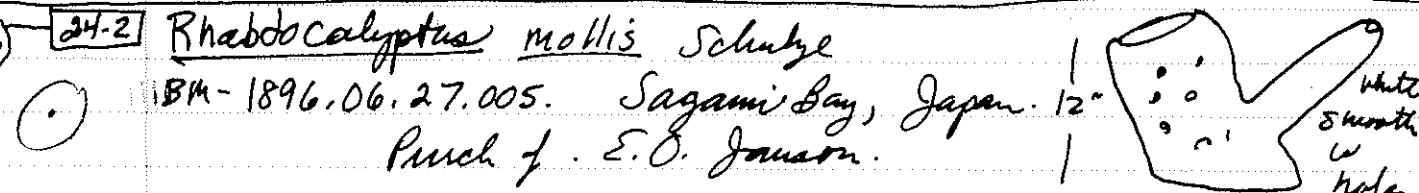 24-2 Rhabdocalyptus mollis Schulze
BM-1896.06.27.005. Sagami Bay, Japan. 12"
Purch f. E.O.
white
smooth
w
holes